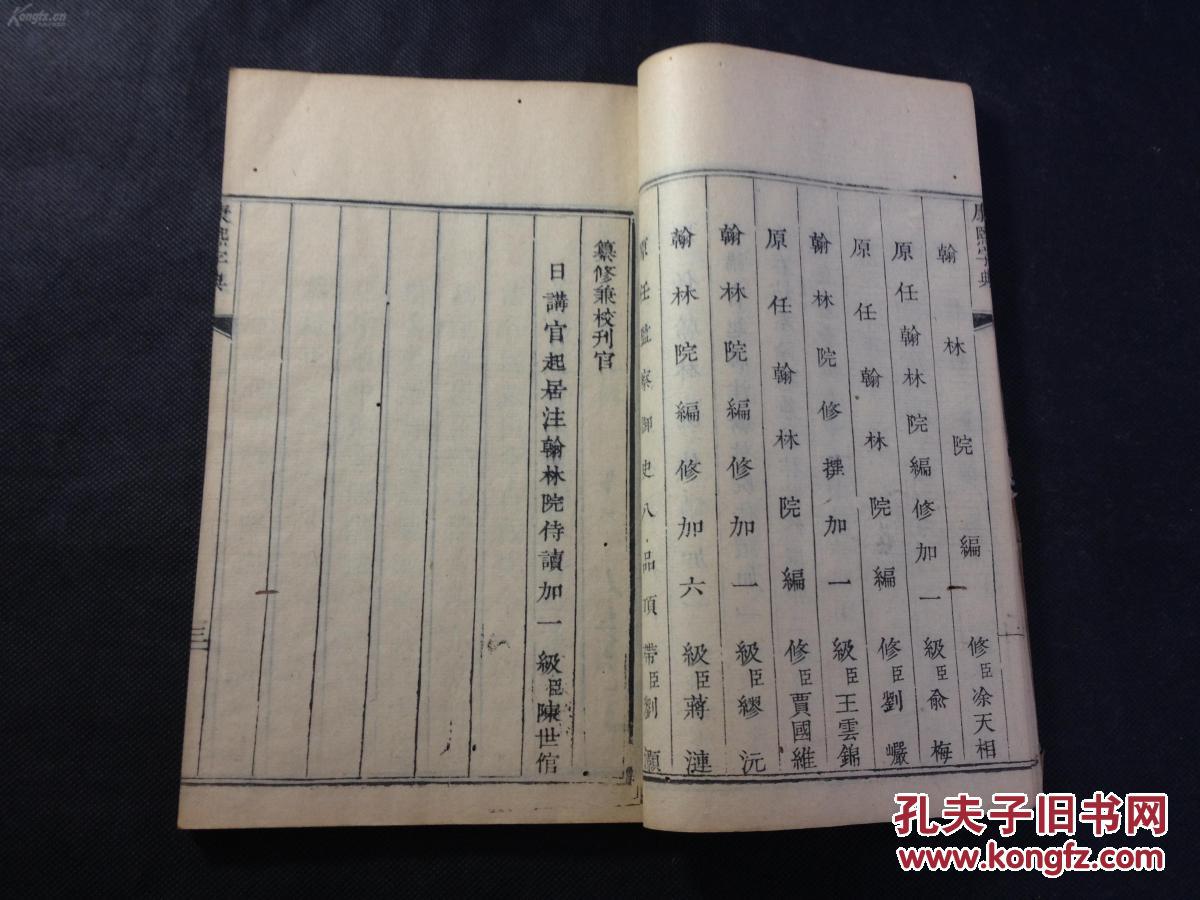 康熙字典
翰林院編修臣凃天相
原任翰林院編修加一級臣俞梅
原任翰林院編修臣劉巖
翰林院修撰加一級臣王雲錦
原任翰林院編修臣賈國維
翰林院編修加一級臣繆沅
翰林院編修加六級臣蔣漣
原任監察御史八品頂帶臣劉灝
纂修兼校刊官
日講官起居注翰林院侍讀加一級臣陳世倌
康熙字典
三
Kongfz.cn
孔夫子旧书网
www.Kongfz.com